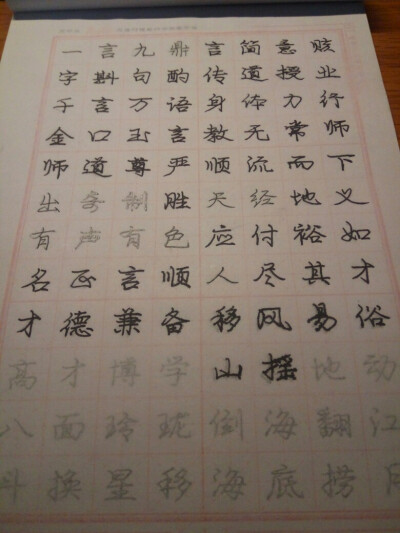 一言九鼎言简意赅
字斟句酌传道授业
千言万语身体力行
金口玉言教无常师
师道尊严顺流而下
出奇制胜天经地义
有声有色应付裕如
名正言顺人尽其才
才德兼备移风易俗
高才博学山摇地动
八面玲珑倒海翻江
斗换星移海底捞月